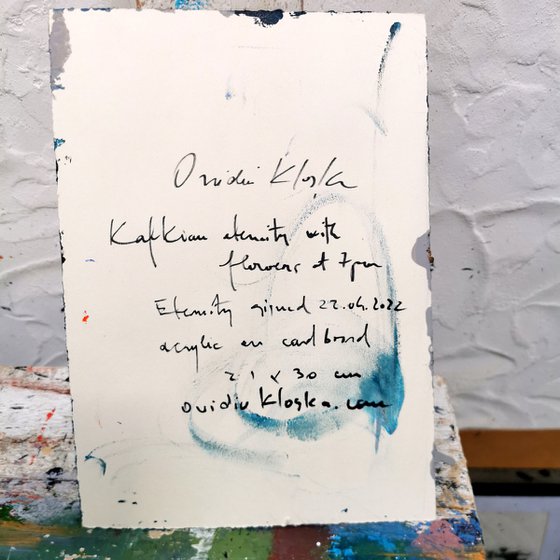 Ovidiu Kloska
Kafkian eternity with
flowers at 7pm
Eternity signed 22.04.2022
acrylic on cardboard
21 x 30 cm
ovidiukloska.com